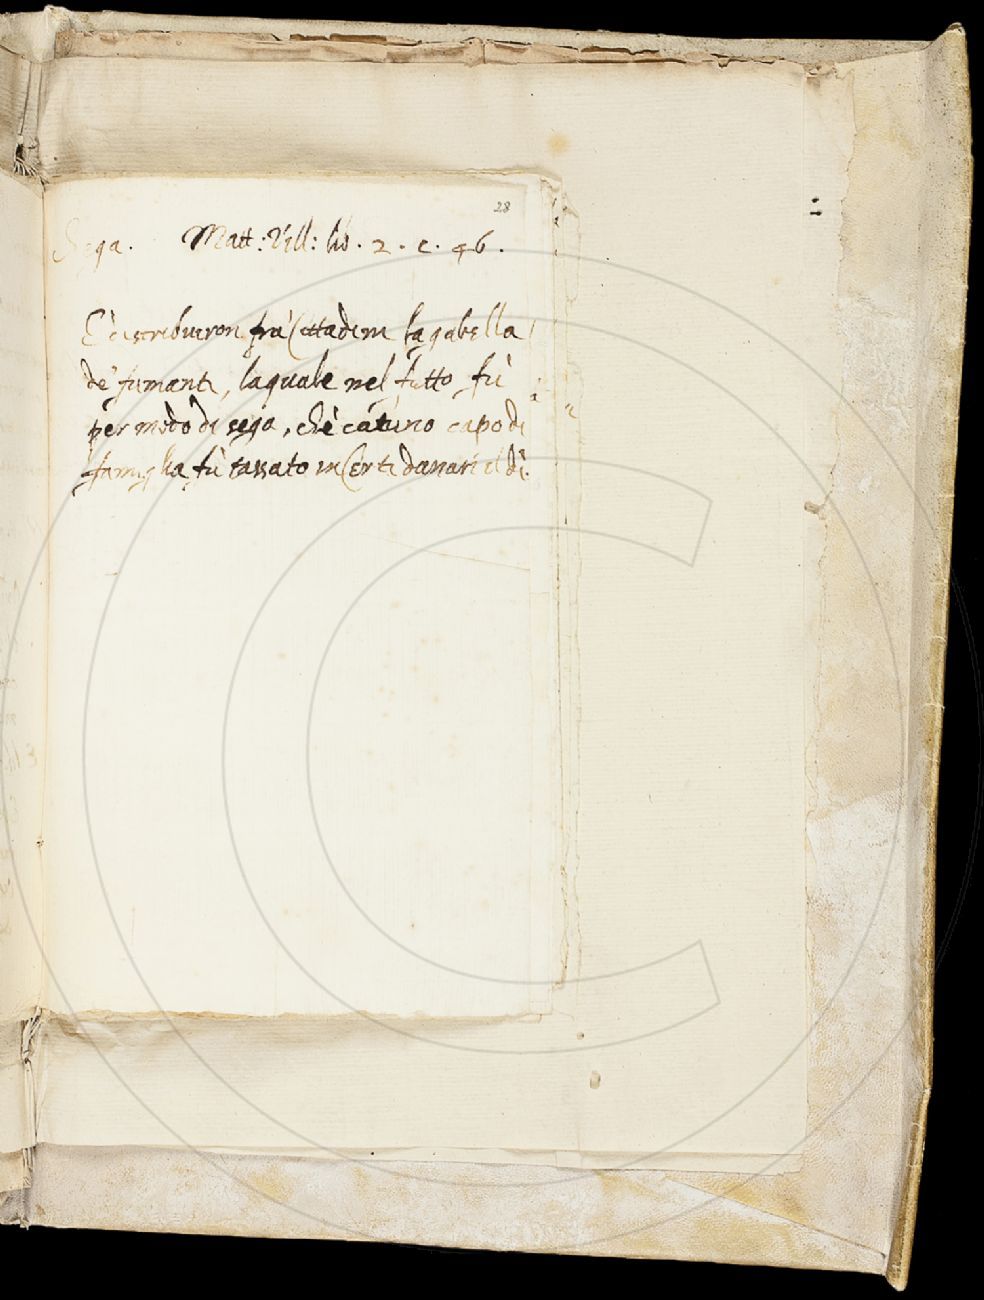 28
Sega. Matt: Vill: lib. 2. c. 46.
E distribuiron frà Cittadini la gabella
de' fumanti, la quale nel tutto fù
per modo di sega, chè catuno capo di
famiglia fù tassato in Certi danari il dì.